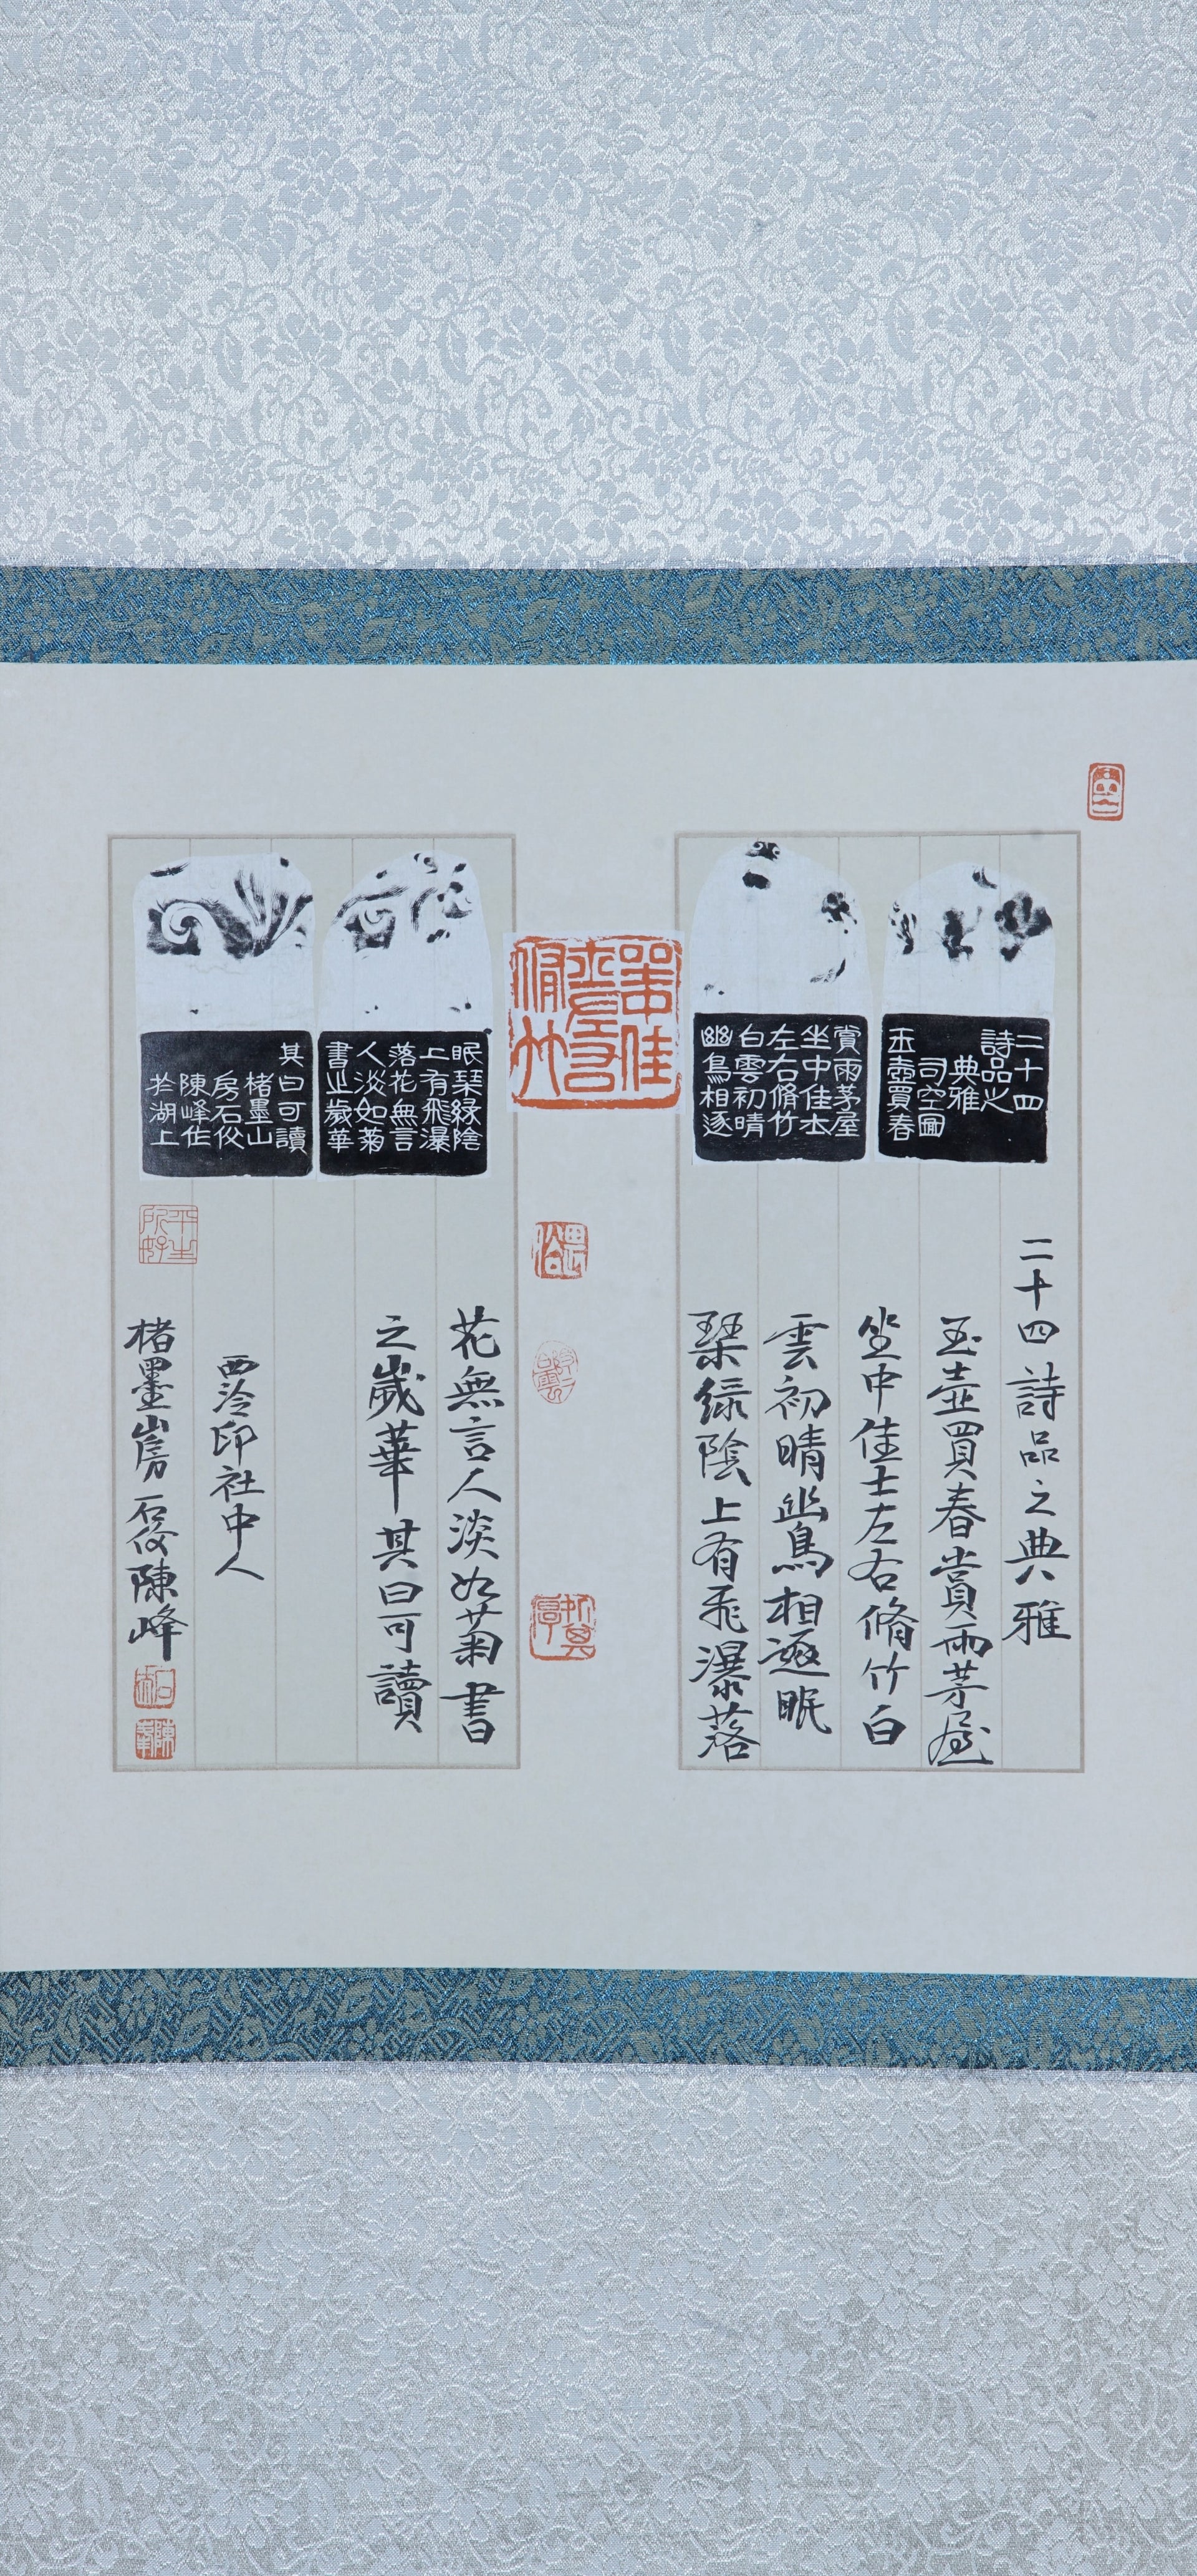 二十四
詩品之
典雅
司空圖
玉壺買春
賞雨茅屋
坐中佳士
左右脩竹
白雲初晴
幽鳥相逐
眠琹緑陰
上有飛瀑
落花無言
人淡如菊
書之歲華
其曰可讀
楮墨山
房石佼
陳峰作
於湖上
坐中佳士左右脩竹
二十四詩品之典雅
玉壺買春賞雨茅屋
坐中佳士左右脩竹白
雲初晴幽鳥相逐眠
琹緑陰上有飛瀑落
花無言人淡如菊書
之歲華其曰可讀
西泠印社中人
楮墨山房石佼陳峰
平生所好
陳峰